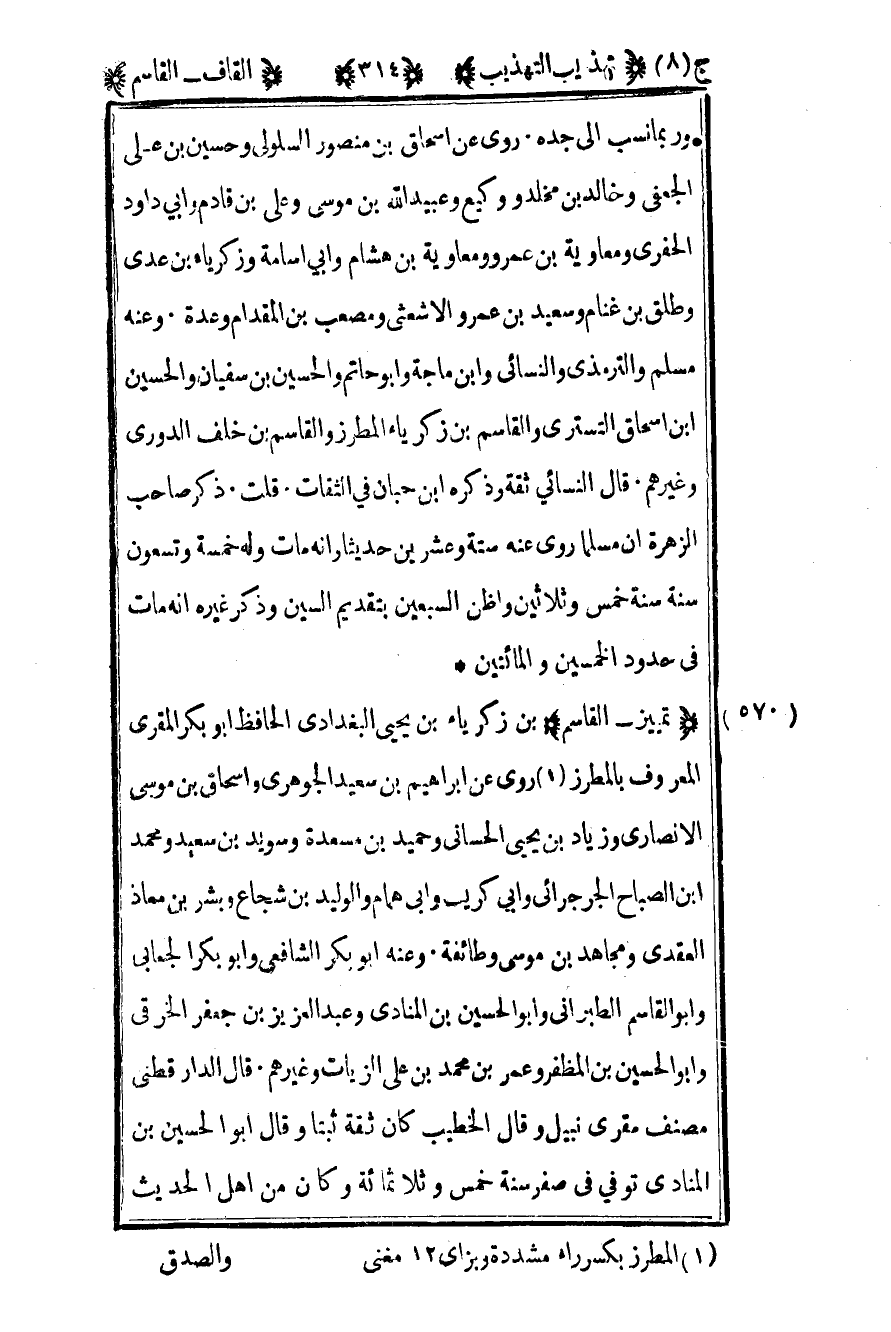 ج(٨) ﴿ تهذيب التهذيب ﴾ ﴿٣١٤﴾ ﴿ القاف ـ القاسم ﴾
وربمانسب الى جده ٠ روى عن اسحاق بن منصور السلولى وحسين بن على
الجعفى وخالد بن مخلد ووكيع وعبيدالله بن موسى وعلى بن قادم وابي داود
الحفرى ومعاوية بن عمرو ومعاوية بن هشام وابي اسامة وزكرياء بن عدى
وطلق بن غنام وسعيد بن عمرو الاشعثى ومصعب بن المقدام وعدة ٠ وعنه
مسلم والترمذى والنسائى وابن ماجة وابوحاتم والحسين بن سفيان والحسين
ابن اسحاق التسترى والقاسم بن زكرياء المطرز والقاسم بن خلف الدورى
وغيرهم ٠ قال النسائي ثقة وذكره ابن حبان في الثقات ٠ قلت ٠ ذكر صاحب
الزهرة ان مسلما روى عنه ستة وعشرين حديثا رانه مات وله خمسة وتسعون
سنة سنة خمس وثلاثين واظن السبعين بتقديم السين وذكر غيره انه مات
فى حدود الخمسين والمائتين *
(٥٧٠) ﴿ تمييز ـ القاسم ﴾ بن زكرياء بن يحيى البغدادى الحافظ ابوبكر المقرى
المعروف بالمطرز (١) روى عن ابراهيم بن سعيد الجوهرى واسحاق بن موسى
الانصارى وزياد بن يحيى الحسانى وحميد بن مسعدة وسويد بن سعيد ومحمد
ابن الصباح الجرجرائى وابي كريب وابى همام والوليد بن شجاع وبشر بن معاذ
العقدى ومجاهد بن موسى وطائفة ٠ وعنه ابوبكر الشافعى وابوبكر الجعابى
وابوالقاسم الطبرانى وابوالحسين بن المنادى وعبدالعزيز بن جعفر الخرقى
وابوالحسين بن المظفر وعمر بن محمد بن على الزيات وغيرهم ٠ قال الدارقطنى
مصنف مقرى نبيل وقال الخطيب كان ثقة ثبتا وقال ابوالحسين بن
المنادى توفي فى صفر سنة خمس وثلاثمائة وكان من اهل الحديث
(١) المطرز بكسر راء مشددة وبزاى ١٢ مغنى والصدق